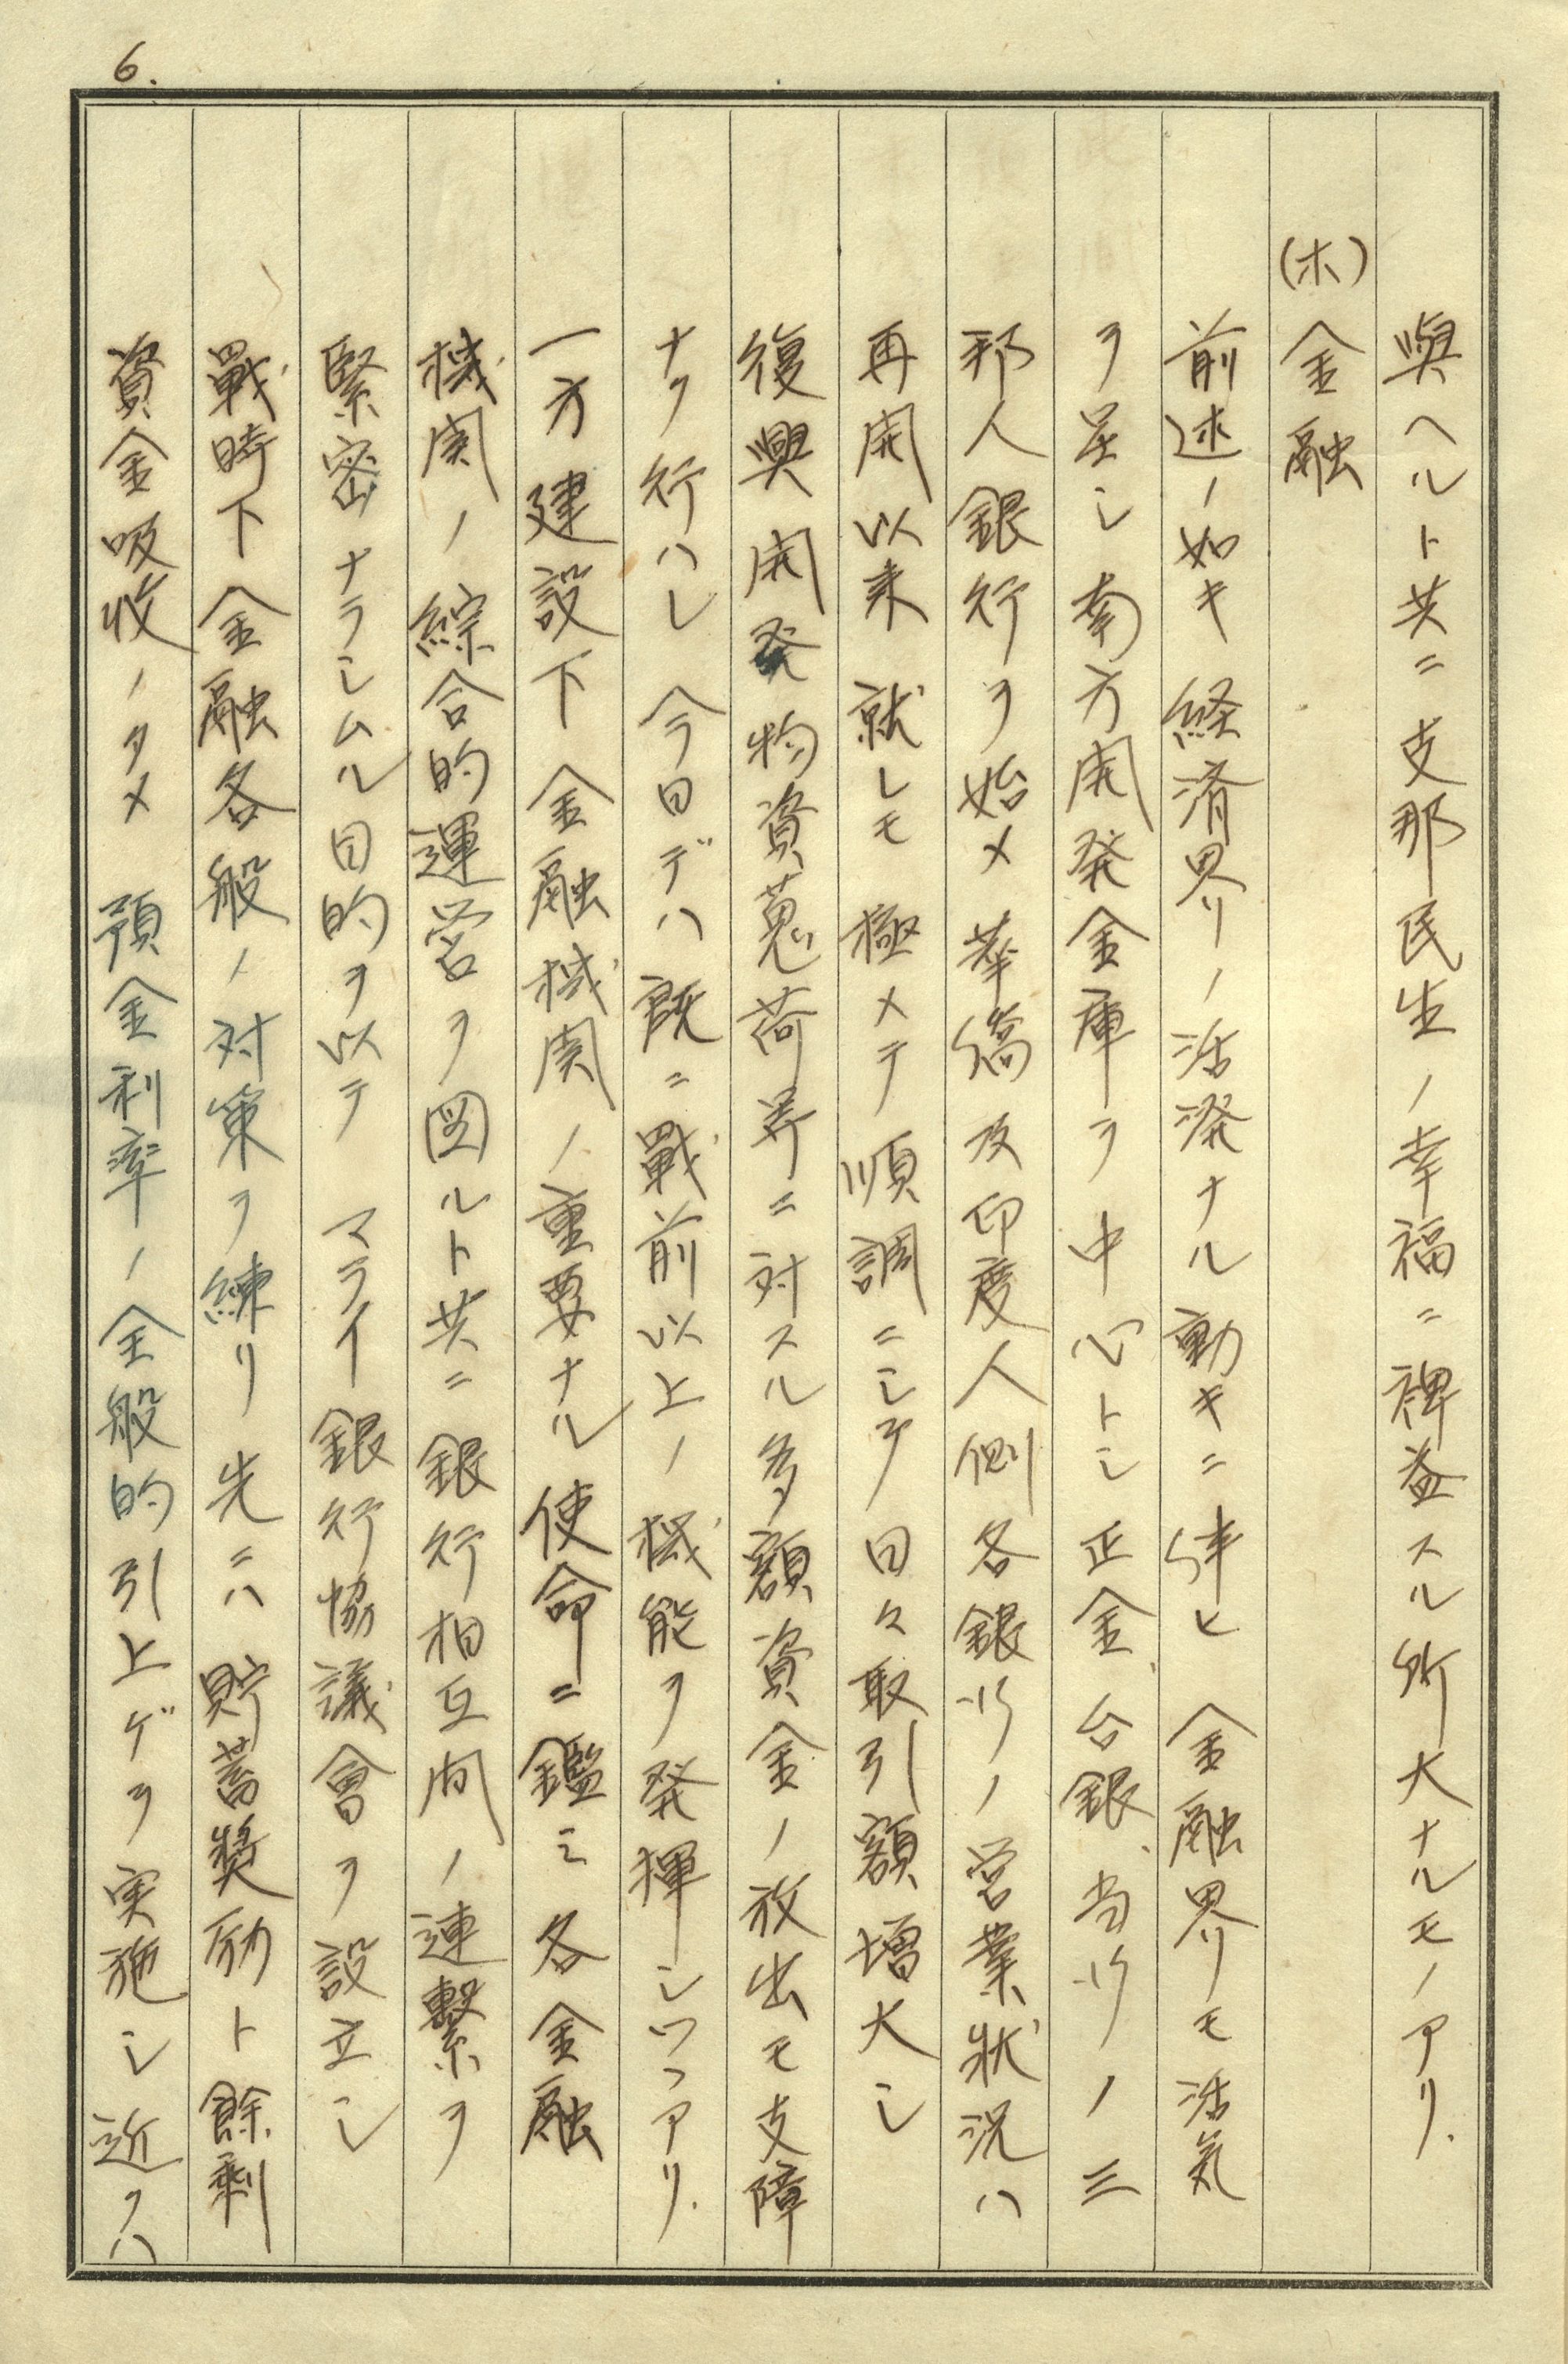 6.
與ヘルト共ニ支那民生ノ幸福ニ裨益スル所大ナルモノアリ.
(ホ)金融
前述ノ如キ経済界ノ活溌ナル動キニ伴ヒ金融界モ活気
ヲ呈シ南方開発金庫ヲ中心トシ正金、台銀、当行ノ三
邦人銀行ヲ始メ華僑及印度人側各銀行ノ営業状況ハ
再開以来就レモ極メテ順調ニシテ日々取引額増大シ
復興開発物資蒐荷等ニ対スル多額資金ノ放出モ支障
ナク行ハレ今日デハ既ニ戰前以上ノ機能ヲ発揮シツヽアリ.
一方建設下金融機関ノ重要ナル使命ニ鑑ミ各金融
機関ノ綜合的運営ヲ図ルト共ニ銀行相互間ノ連繋ヲ
緊密ナラシムル目的ヲ以テマライ銀行協議會ヲ設立シ
戰時下金融各般ノ対策ヲ練リ先ニハ貯蓄奬励ト餘剰
資金吸收ノタメ預金利率ノ全般的引上ゲヲ実施シ近クハ